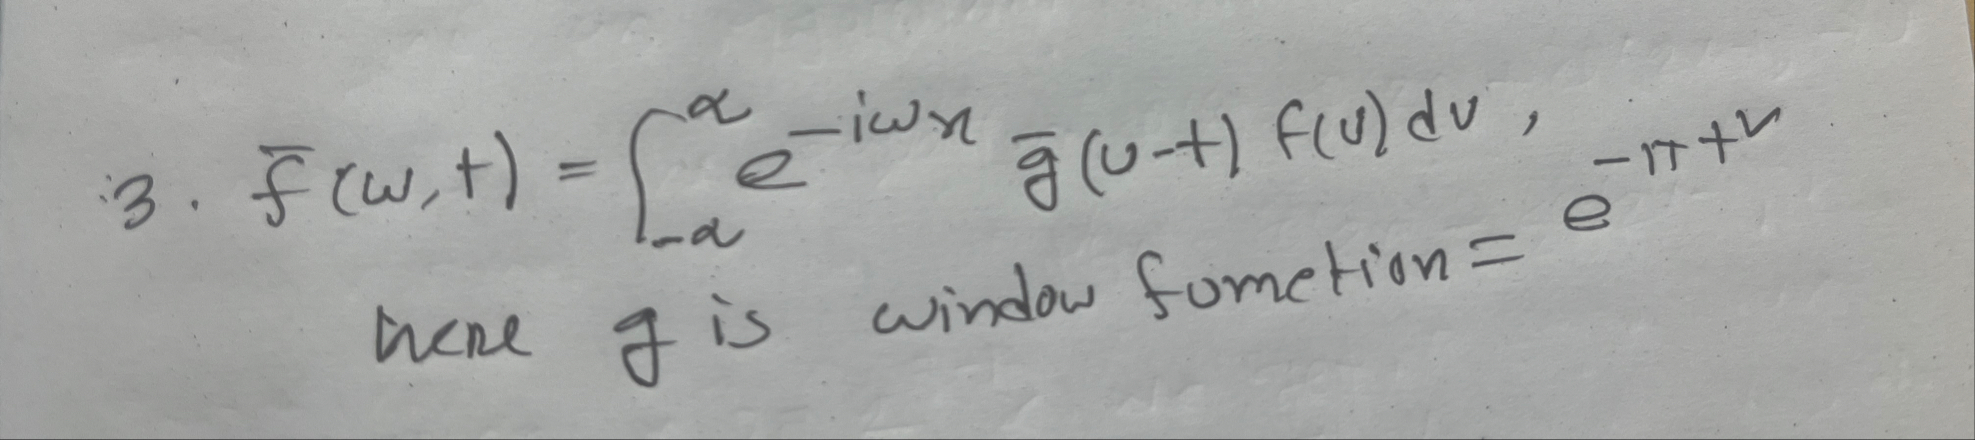 3. f̄(ω,t) = ∫_{-α}^{α} e^{-iωx} ḡ(υ-t) f(υ) dυ,
here g is window fumction = e^{-πt²}